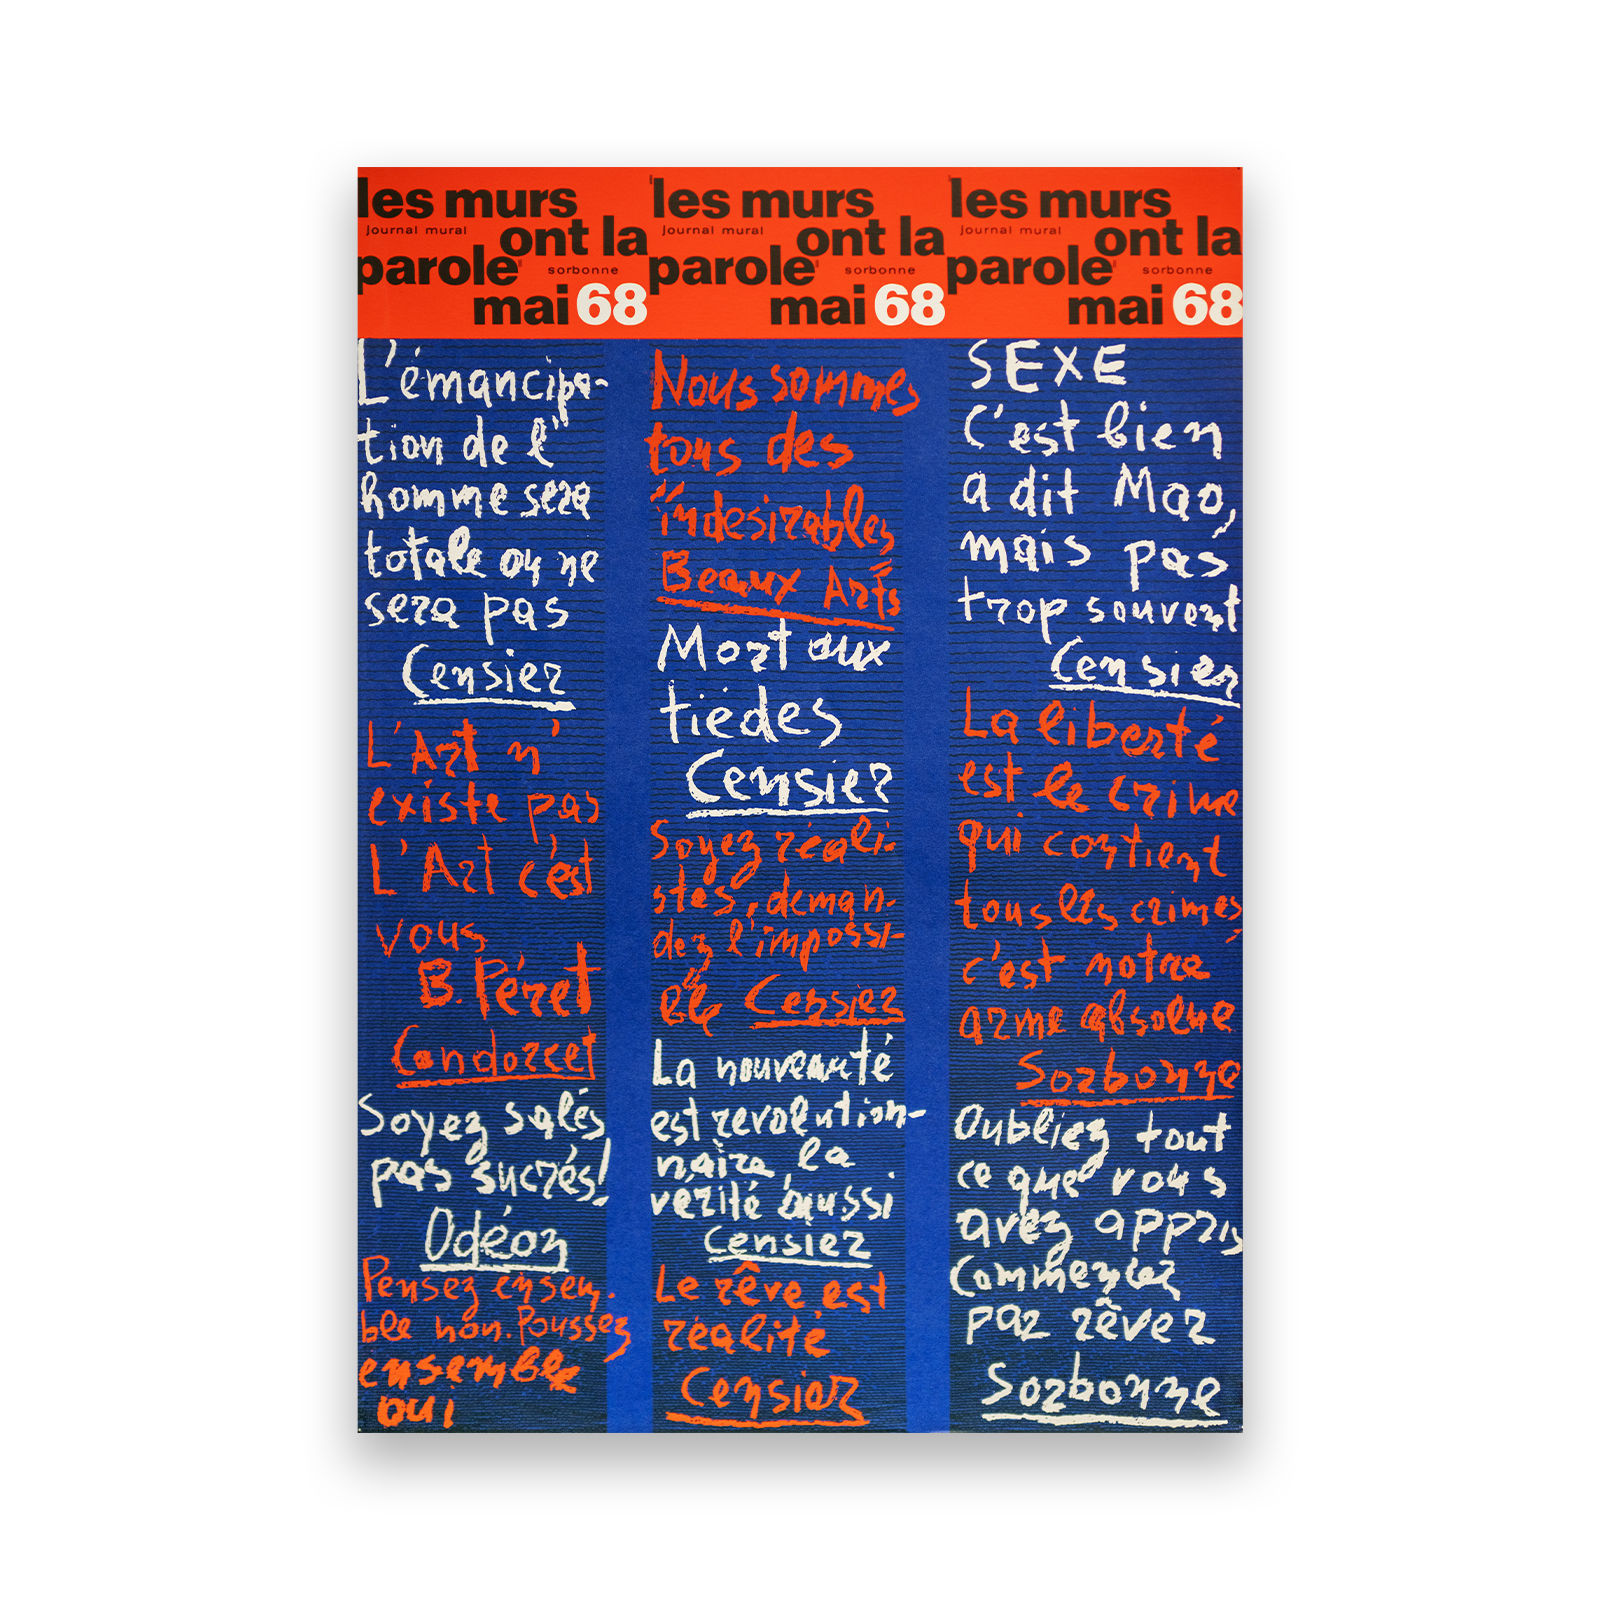 'les murs
journal mural
ont la
parole'
sorbonne
mai 68
L'émancipa-
tion de l'
homme sera
totale ou ne
sera pas
Censier
L'Art n'
existe pas
L'Art c'est
vous
B. Péret
Condorcet
Soyez salés,
pas sucrés!
Odéon
Pensez ensem-
ble non. Poussez
ensemble
oui
'les murs
journal mural
ont la
parole'
sorbonne
mai 68
Nous sommes
tous des
"indésirables"
Beaux Arts
Mort aux
tièdes
Censier
Soyez réali-
stes, deman-
dez l'impossi-
ble Censier
La nouveauté
est revolution-
naire, la
vérité aussi
Censier
Le rêve est
réalité
Censier
'les murs
journal mural
ont la
parole'
sorbonne
mai 68
SEXE
C'est bien
a dit Mao,
mais pas
trop souvent
Censier
La liberté
est le crime
qui contient
tous les crimes,
c'est notre
arme absolue
Sorbonne
Oubliez tout
ce que vous
avez appris
Commencez
par rêver
Sorbonne